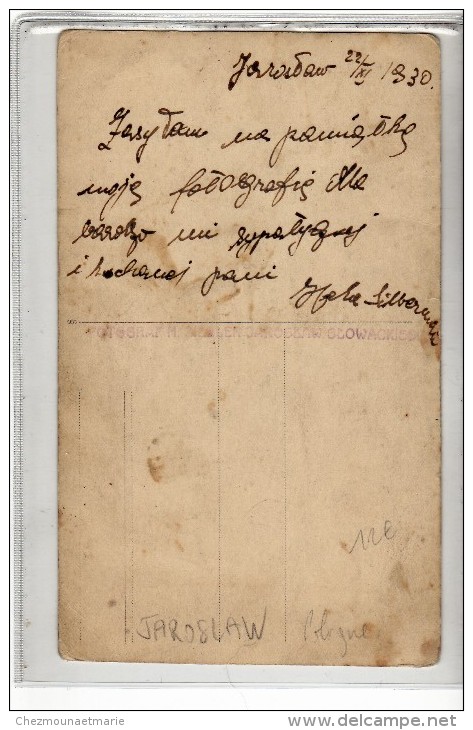 Jarosław 22/XI 1930.
Zasyłam na pamiątkę
moją fotografię dla
bardzo mi sypatycznej
i kochanej pani
Hela Silberman
FOTOGRAF JAROSŁAW SŁOWACKIEGO
12€
JAROSLAW Pologne
Chezmounaetmarie
www.delcampe.net